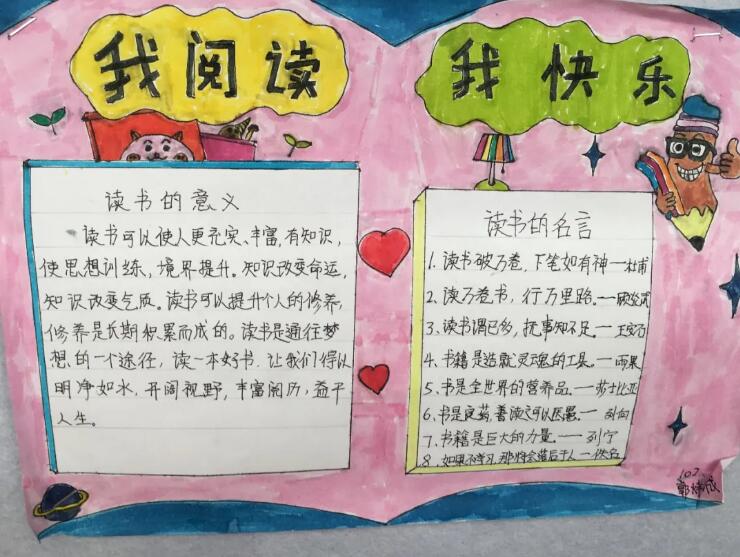 我阅读
我快乐
读书的意义
读书可以使人更充实、丰富,有知识,
使思想训练,境界提升。知识改变命运,
知识改变气质。读书可以提升个人的修养,
修养是长期积累而成的。读书是通往梦
想的一个途径,读一本好书,让我们得以
明净如水,开阔视野,丰富阅历,益于
人生。
读书的名言
1. 读书破万卷,下笔如有神一杜甫
2. 读万卷书,行万里路。
3. 读书谓已多,抚事知不足一王安石
4. 书籍是造就灵魂的工具。一雨果
5. 书是全世界的营养品。一莎士比亚
6. 书是良药,善读之可以医愚。一刘向
7. 书籍是巨大的力量。一列宁
8. 如果不学习,那将会落后于人一佚名
102